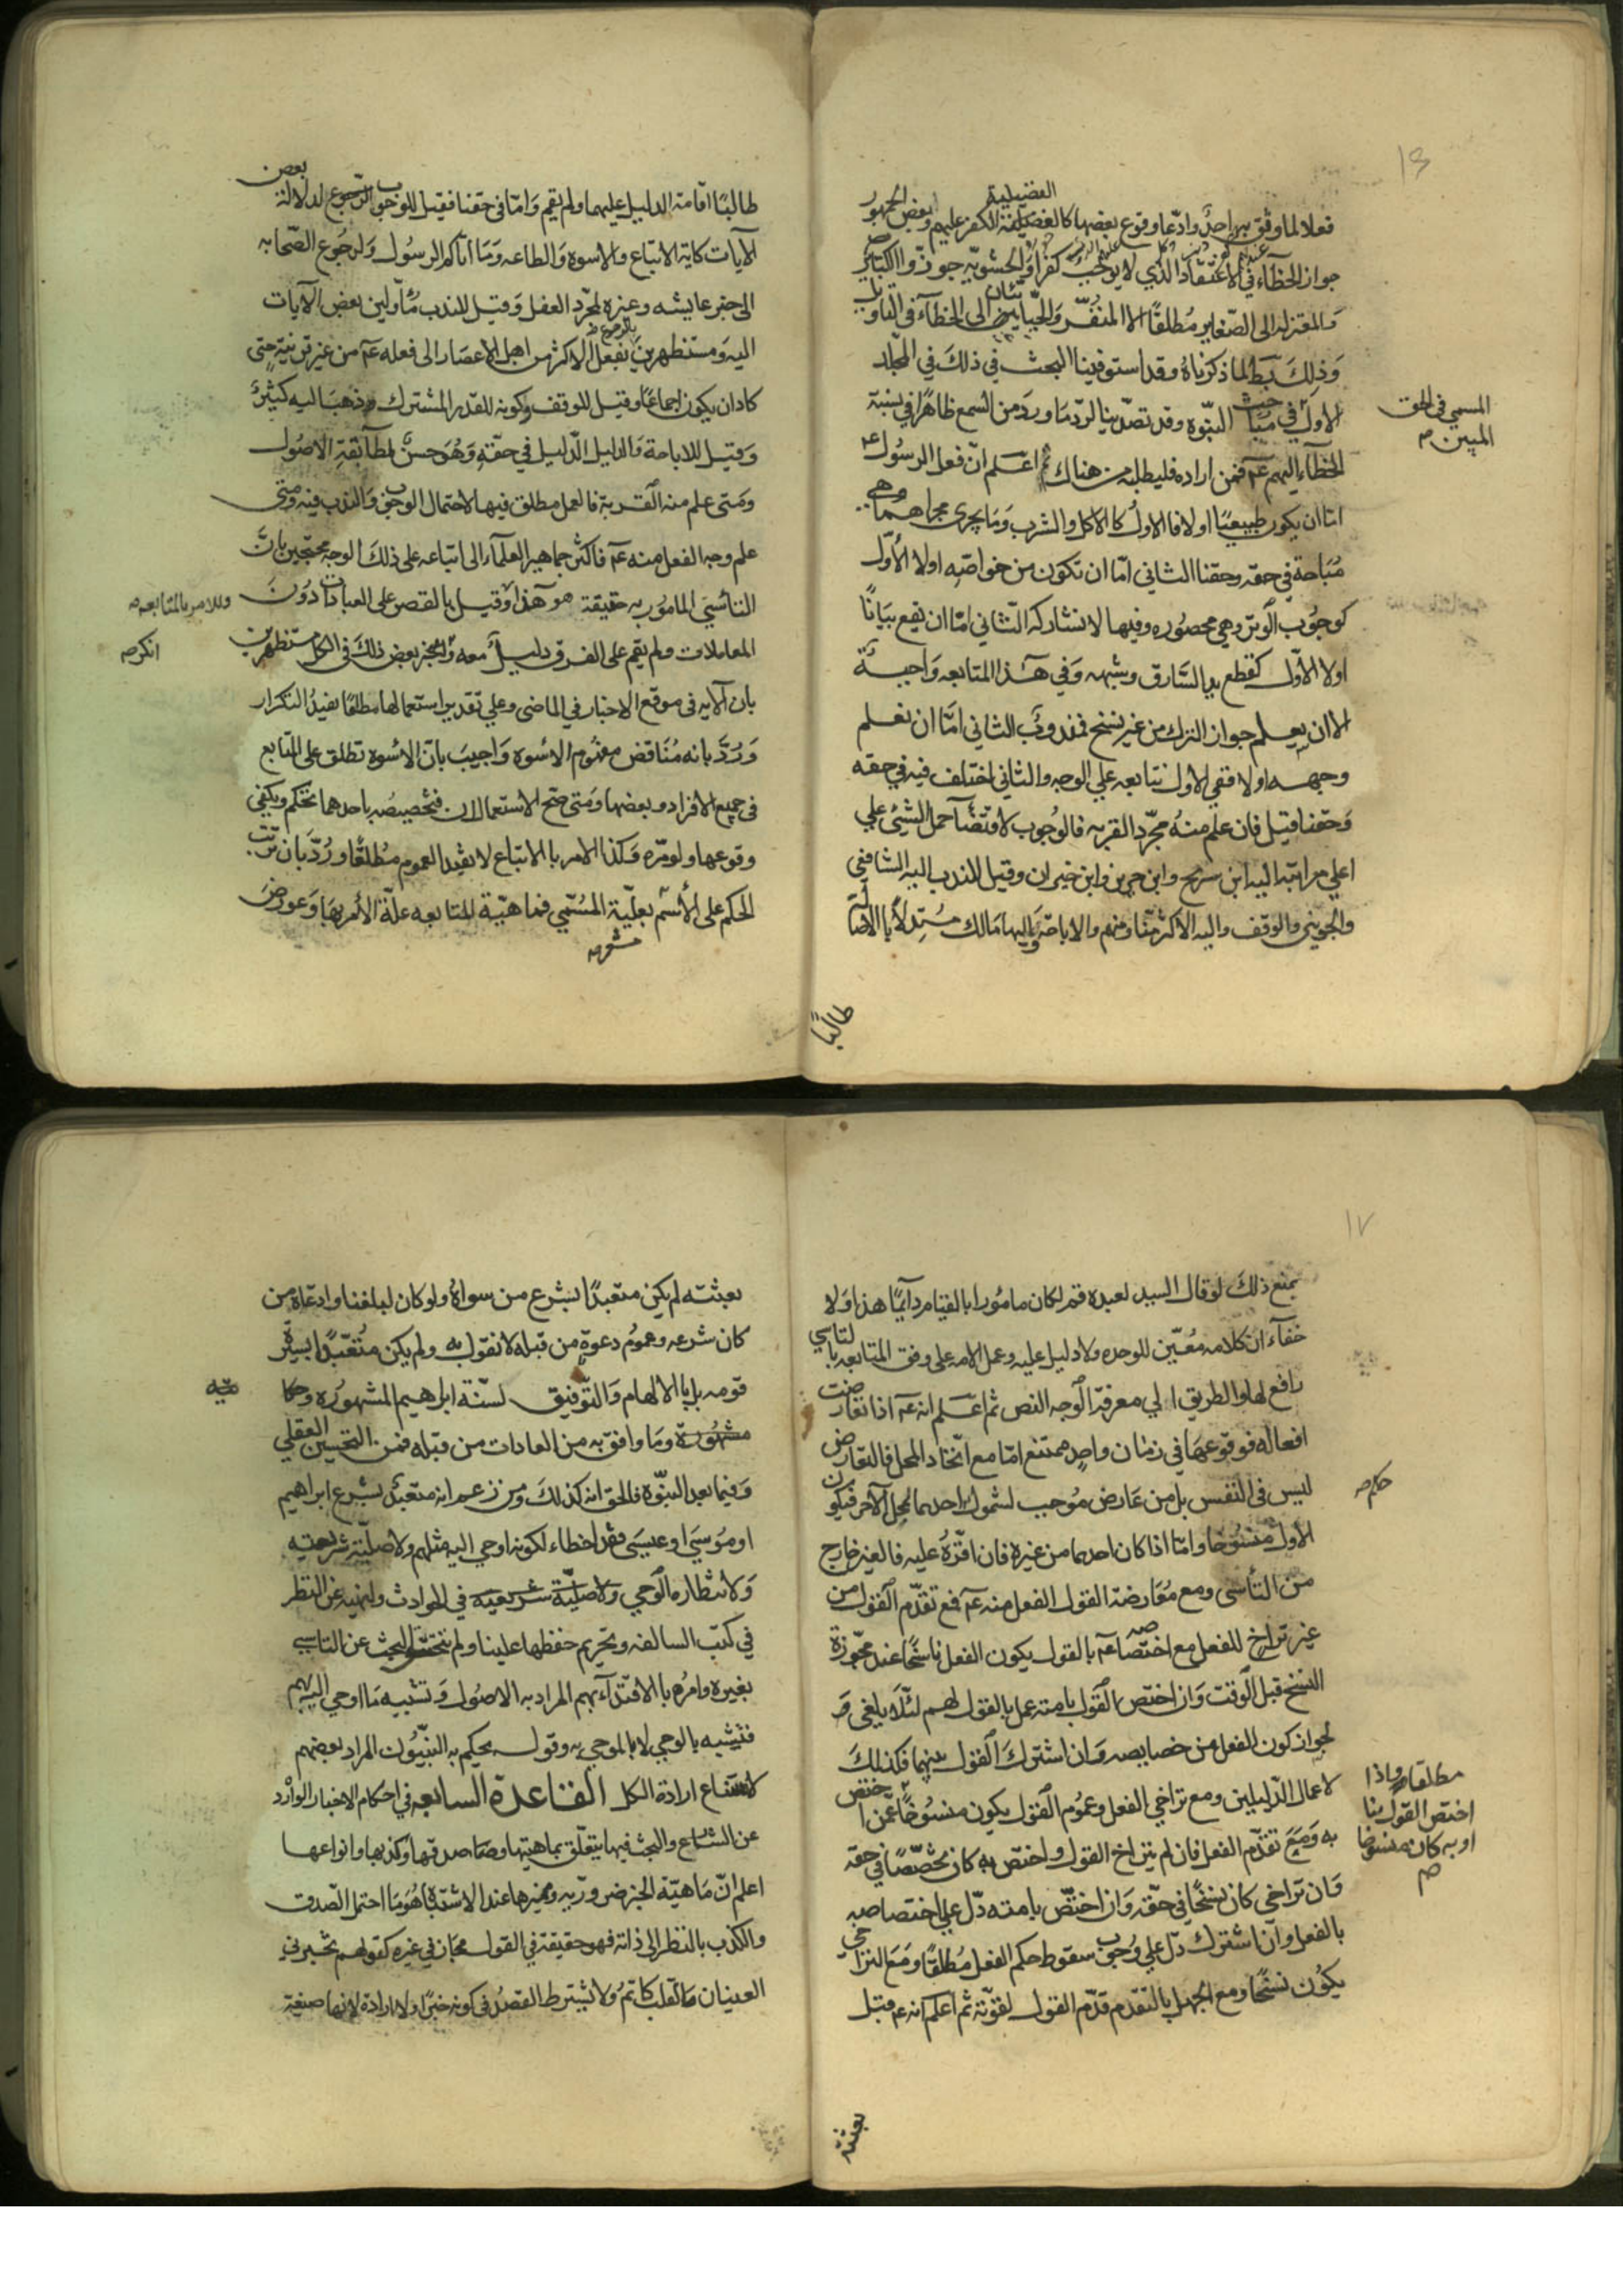 ١٦
الفضيلية
فعلا لما وثق بهم احدٌ وادّعا وقوع بعضها كالفضيلية الكفر عليهم وبعض الجمهور
جواز الخطاء في الاعتقاد الذي لا يوجب كفرًا والحشويّه جوزوا الكبائر
والمعتزله الى الصّغاير مُطلقًا الا المنفّر والجبّائيان الى الخطآء في التاويل
وَذلكَ بَط لما ذكرناهُ وقد استوفينا البحث في ذلكَ في المجلّد
الاولَ في مبَاحث النبّوة وقد تصدّينا لردّ ما وردَ من السّمع ظاهرًا في نسبة
المسمي في الحق
المبين صح
الخطآء اليهم عم فمن اراده فليطلبه من هناك ثم اعلم انّ فعل الرسول عم
امّا ان يكون طبيعيًا اولا فالاولُ كالاكل والشرب وَمَا يجرى مجراهما وهي
مُبَاحة في حقه وحقنا الثاني امّا ان تكون من خواصّه اولا الأوّل
كوجُوب الوتر وهي محصُوره وفيها لا نشاركه الثّاني امّا ان يقع بيَانًا
اولا الاوّل كقطع يد السَّارق وشبهه وَفي هذا المتابعه وَاجبة
الا ان يعلم جواز الترك من غير نسخ فمندوبٌ الثاني امَّا ان نعلم
وجهه اولا ففي الاول نتابعه علي الوجه والثاني اختلف فيه في حقه
وَحقنا فقيل فان علم منهُ مجرّد القربه فالوُجوب لاقتضآء حمل الشئ علي
اعلي مراتبه اليه ابن سريج وابن خيران وقيل للندب اليه الشافعي
والجويني والوقف واليه الاكثر منّا ومنهم والاباحة وَاليها مَالك مُستدلاً بالاصالة
طالبًا
طالبًا اقامة الدليل عليهما ولم يقم وَامّا في حقنا فقيل للوجوب لدلالة بعض
الآيات كاية الاتباع والاسوة وَالطاعه وَمَا اتاكم الرسُول وَلرجُوع الصّحابه
الى خبر عايشه وغيره لمجرّد الفعل وَقيل للندب مُأوّلين بعض الآيات
اليه وَمستظهرين بفعل الاكثر من اهل الاعصَار الى فعله عم من غير قرينة حتى
كاد ان يكون اجماعًا وقيل للوقف وكونه للقدر المشترك وذهبَ اليه كثيرٌ
وَقيل للاباحة وَالدليل الدّليل في حقّهِ وَهُوَ حسنٌ لمطابقةِ الاصُول
وَمتى علم منه القربة فالعمل مطلق فيها لاحتمال الوجوب وَالندب فيه ومتى
علم وجه الفعل منه عم فاكثر جماهير العلمآء الى اتباعه على ذلكَ الوجه محتجّين بانّ
التاسّي المامُور به حقيقة هو هذا وقيل بالقصر على العبادات دُونَ
وللامر بالمتابعه صح
المعاملات ولم يقم على الفرق دليلٌ معه وانكر بعض ذلكَ في الكل مستظهرين
انكر صح
بان الايه في موقع الاخبار في الماضي وعلي تقدير استعمالها مطلقًا يفيدُ التكرار
وَرُدَّ بانه مُنَاقض مفهُوم الاسُوه وَاجيبَ بانّ الاسُوة تطلق على المتابع
في جميع الافراد وبعضها وَمتى صَحّ الاستعمالان فتخصيصُه باحدهما تحكم ويكفي
وقوعها ولو مرّه وَكذا الامر بالاتباع لا يفيد العموم مُطلقًا ورُدّ بان ترتّب
الحكم على الأسم بعلّية المسُمّي فماهيّة المتابعه علّة الأمر بهَا وَعورضَ
مشعر صح
١٧
بمنع ذلكَ لو قال السيد لعبده قم لكان مامُورا بالقيام دآيمًا هذا وَلا
خفآء انّ كلامه مُعيّن للوحده ولا دليل عليه وعمل الامه على وفق المتابعه بالتاسي
رافع لها والطريق الي معرفة الوجه النص ثم اعلم انه عم اذا تعارضت
افعاله فوقوعهَا في زمَان واحدٍ ممتنع امّا مع اتّحاد المحل فالتعارض
ليس في النفس بل من عَارض مُوجب لشمول احدهما لمحل الآخر فيكون
حكم صح
الأول منسُوخا وامّا اذا كان احدهما من غيره فان اقرّهُ عليه فالغير خارج
من التأسى ومع مُعَارضة القول الفعل منه عم فمع تقدّم القول من
غير تراخٍ للفعل مع اختصاصه عم بالقول يكون الفعل ناسخًا عند مجوّزة
النسخ قبل الوقت وَان اختص القول بامته عمل بالقول لهم لئلّا يلغى وَ
لجواز كون الفعل من خصايصه وَان اشترك القول بينهما فكذلك
لاعمال الدّليلين ومع تراخي الفعل وعمُوم القول يكون منسُوخًا عمن اختص
مطلقا واذا
اختص القول بنا
او به كان منسوخا
صح
به وَمَعَ تقدّم الفعل فان لم يتراخ القول واختص به كان مخصّصًا في حقه
وَان تراخي كان نسخًا في حقّه وَان اختصّ بامته دّل علي اختصاصه
بالفعل وان اشترك دّل علي وُجوب سقوط حكم الفعل مُطلقًا ومَعَ التراخي
يكُون نسخًا ومع الجهل بالتقدم قدّم القول لقوّته ثم اعلم انه عم قبل
بعثته
بعثته لم يكن متعبدًا بشرع من سواهُ ولو كان لبلغنا وادعآه من
كان شرعه وعموُم دعوةِ من قبله لا نقول به ولم يكن مُتعّبدًا بسيرة
قومه بل بالالهام وَالتوّفيق لسنّة ابراهيم المشهوُره وحكا
مشهُورة وَما وافق به من العادات من قبله فمن التحسين العقلي
وَفيما بعد النبّوة فالحقّ انه كذلكَ ومن زعم انه متعبدٌ بشرع ابراهيم
او مُوسَى او عيسَى فقد اخطاء لكونه اوحي اليه مثلهم ولاصليّة شريعته
وَلانتظاره الوحي ولاصليّة شريعيه في الحوادث ولنهيه عن النظر
في كتب السالفه وتحريم حفظها علينا ولم البحث عن التاسي
بغيره وامرُه بالاقتدآء بهم المراد به الاصُول وَتشبيه مَا اوحي اليهم
فتشبيه بالوحي لا بالموحي به وقوله يحكم به النبيُّون المراد بعضهم
لامتناع ارادة الكل القاعدة السابعه في احكام الاخبار الوارد
عن الشارع والبحث فيها يتعلّق بماهيّتها وصدقها وكذبها وانواعها
اعلم انّ مَاهيّة الخبر ضروريّه ومميزها عند الاشتباه هُوَ مَا احتمل الصّدق
والكذب بالنظر الى ذاته فهو حقيقة في القول مجَاز في غيره كقولهم تخبرني
العينان مَا القلب كاتمُ ولا يشترط القصدُ في كونه خبرًا ولا ارادة لانها صيغة